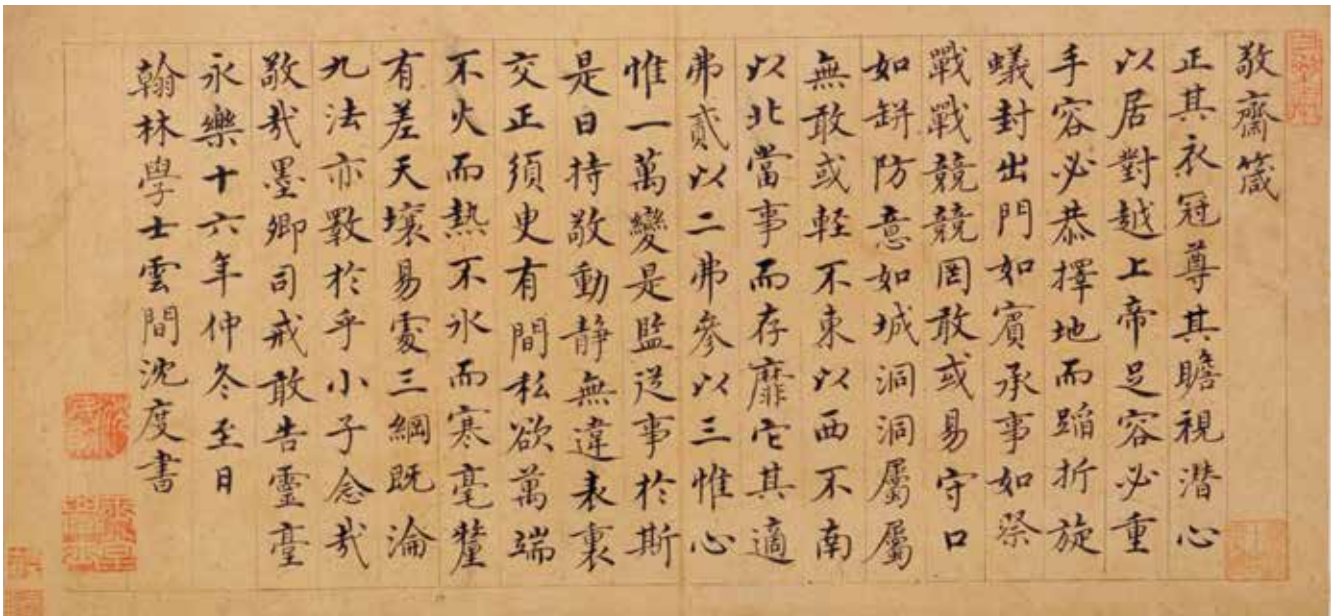 敬齋箴
正其衣冠尊其瞻視潛心
以居對越上帝足容必重
手容必恭擇地而蹈折旋
蟻封出門如賓承事如祭
戰戰兢兢罔敢或易守口
如缾防意如城洞洞屬屬
無敢或輕不東以西不南
以北當事而存靡它其適
弗貳以二弗參以三惟心
惟一萬變是監從事於斯
是曰持敬動靜無違表裏
交正須臾有間私欲萬端
不火而熱不氷而寒毫釐
有差天壤易處三綱既淪
九法亦斁於乎小子念哉
敬哉墨卿司戒敢告靈臺
永樂十六年仲冬至日
翰林學士雲間沈度書